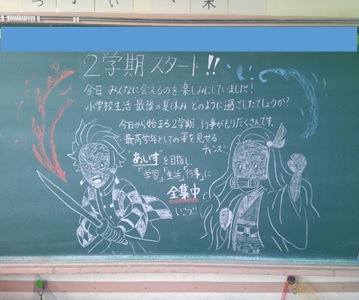 2学期 スタート!!
今日 みんなに会えるのを楽しみにしていました!
小学校生活 最後の夏休み どのように過ごしたでしょうか?
今日から始まる2学期 行事がもりだくさんです。
・最高学年としての姿を見せる
チャンス!!
あいずを目指し、
「学習」「生活」「行事」に
全集中で
いこう!!